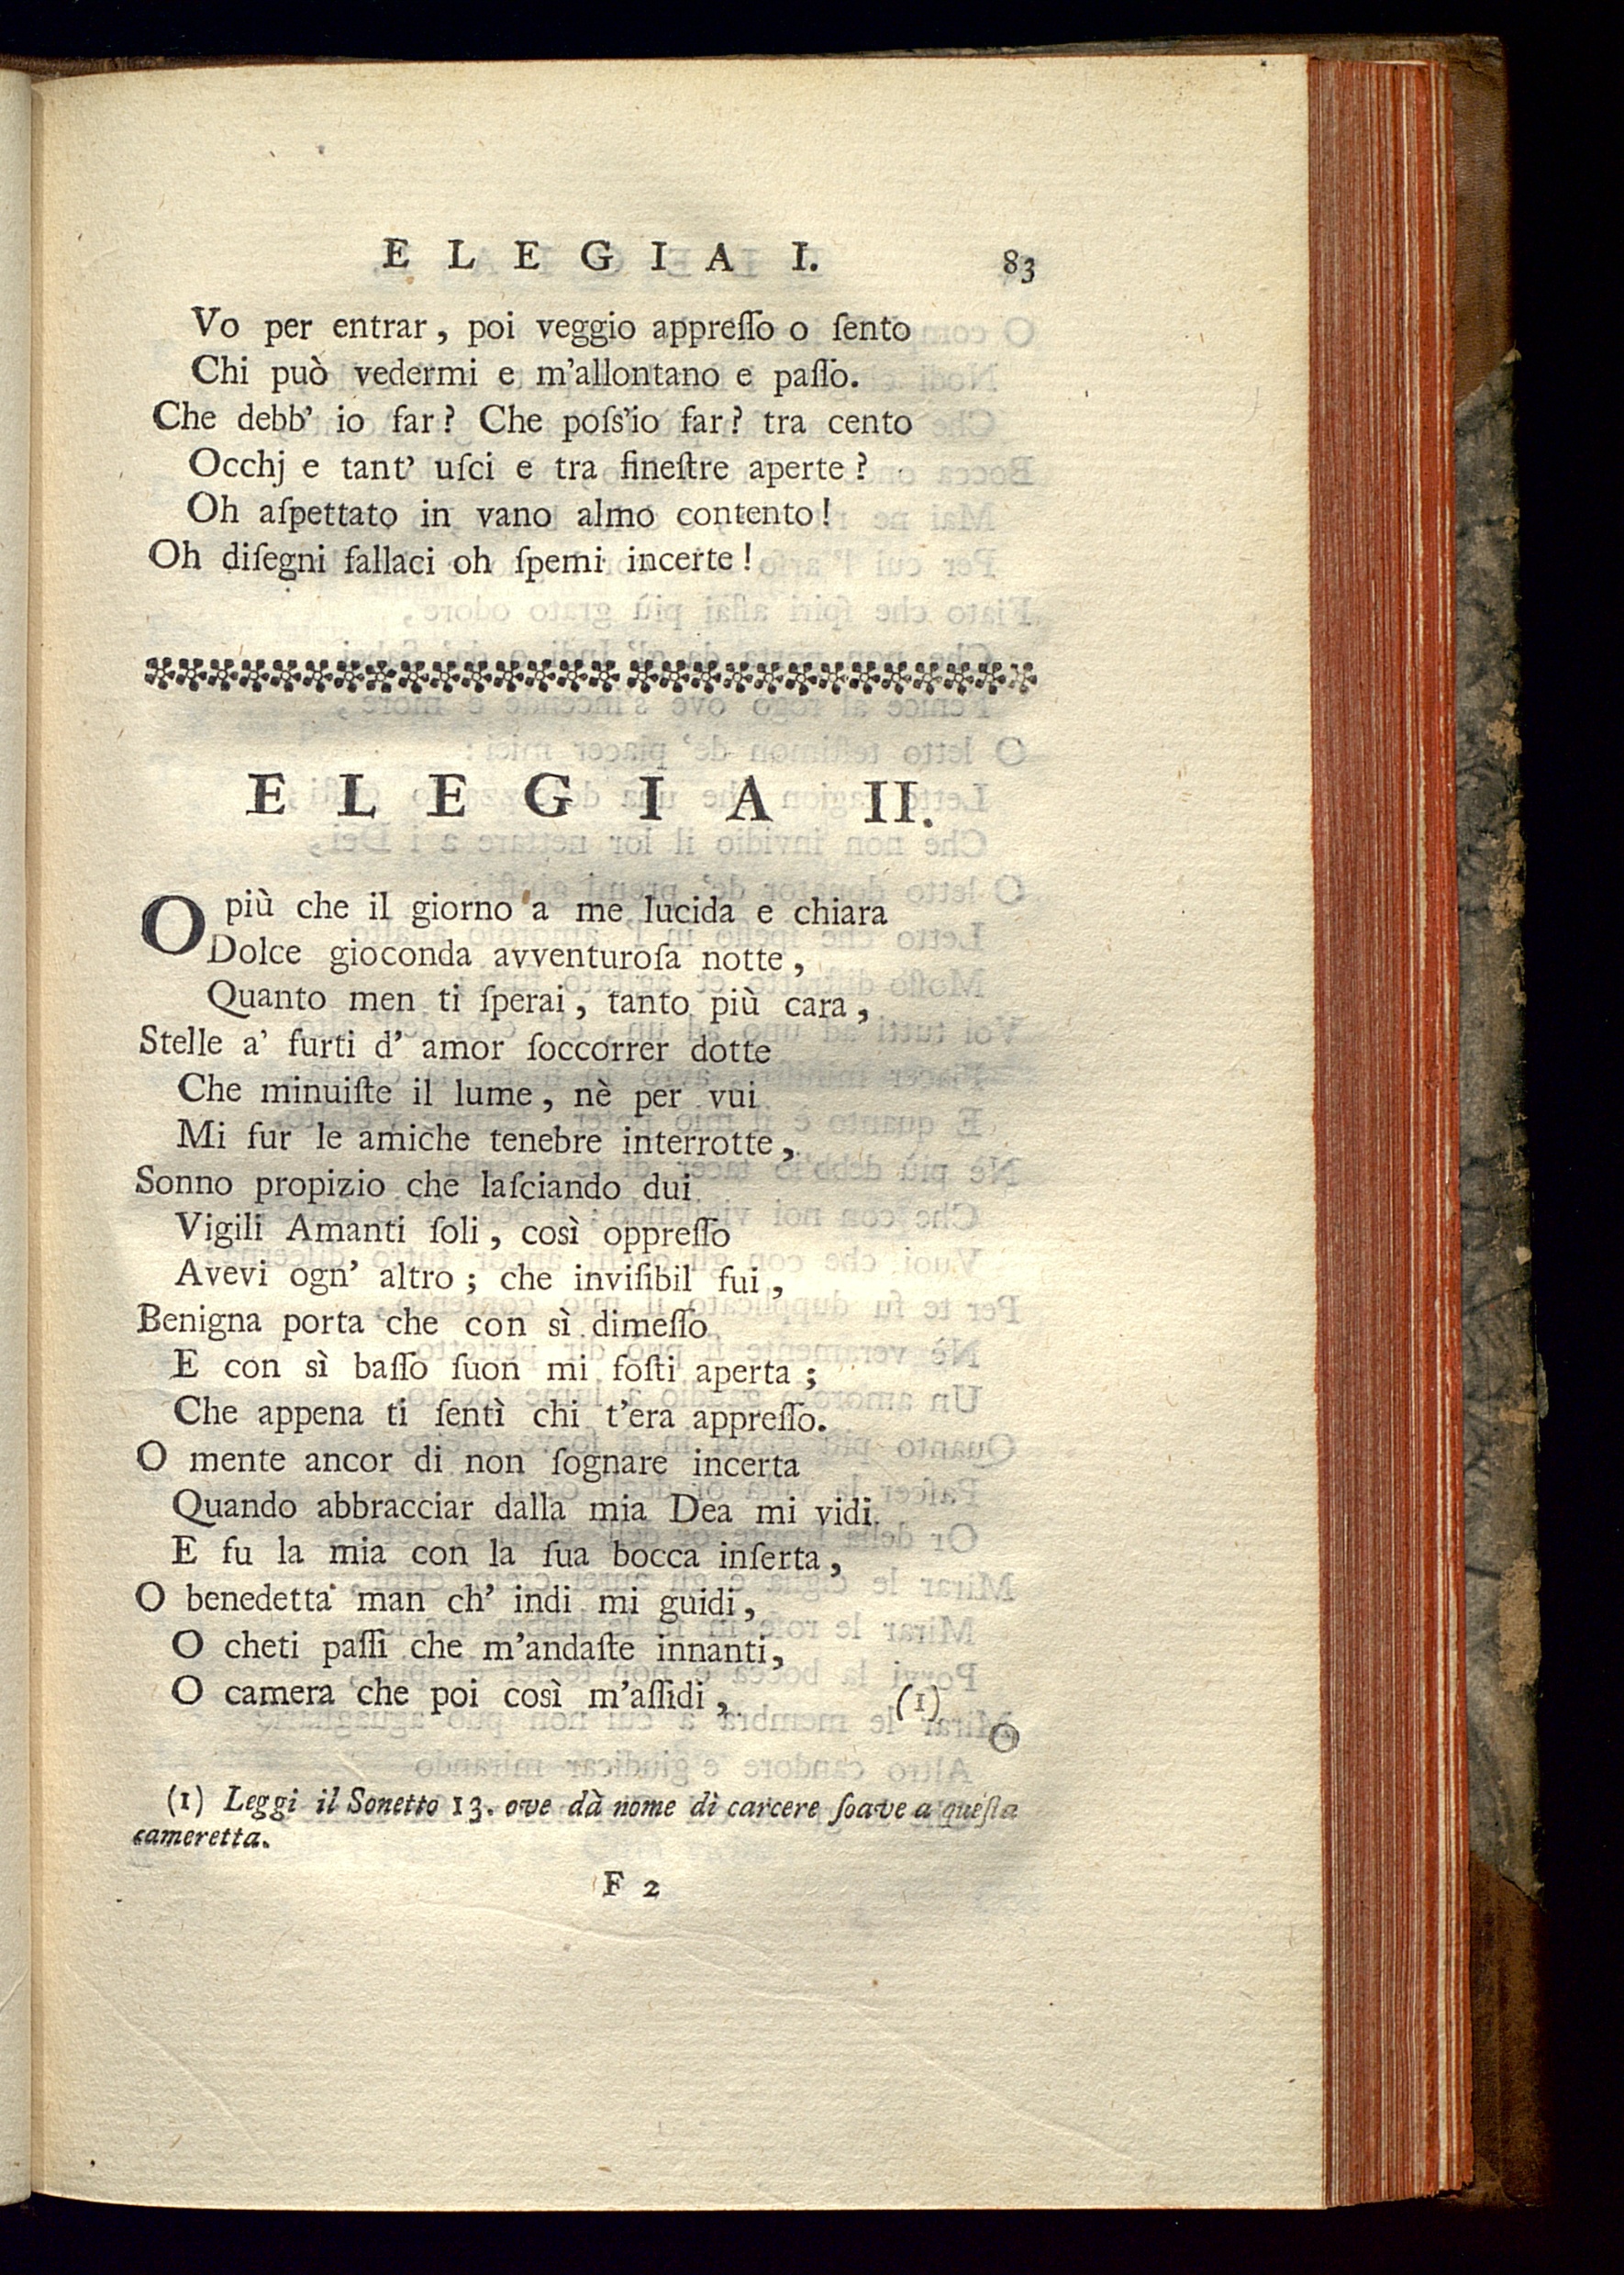 ELEGIA I. 83
Vo per entrar, poi veggio appreſſo o ſento
Chi può vedermi e m'allontano e paſſo.
Che debb' io far? Che poſs'io far? tra cento
Occhj e tant' uſci e tra fineſtre aperte?
Oh aſpettato in vano almo contento!
Oh diſegni fallaci oh ſpemi incerte!
ELEGIA II.
O più che il giorno a me lucida e chiara
Dolce gioconda avventuroſa notte,
Quanto men ti ſperai, tanto più cara,
Stelle a' furti d' amor ſoccorrer dotte
Che minuiſte il lume, nè per vui
Mi fur le amiche tenebre interrotte,
Sonno propizio che laſciando dui
Vigili Amanti ſoli, così oppreſſo
Avevi ogn' altro; che inviſibil fui,
Benigna porta che con sì dimeſſo
E con sì baſſo ſuon mi foſti aperta;
Che appena ti ſentì chi t'era appreſſo.
O mente ancor di non ſognare incerta
Quando abbracciar dalla mia Dea mi vidi
E fu la mia con la ſua bocca inſerta,
O benedetta man ch' indi mi guidi,
O cheti paſſi che m'andaſte innanti,
O camera che poi così m'aſſidi, (1)
O
(1) Leggi il Sonetto 13. ove dà nome di carcere ſoave a queſta
cameretta.
F 2